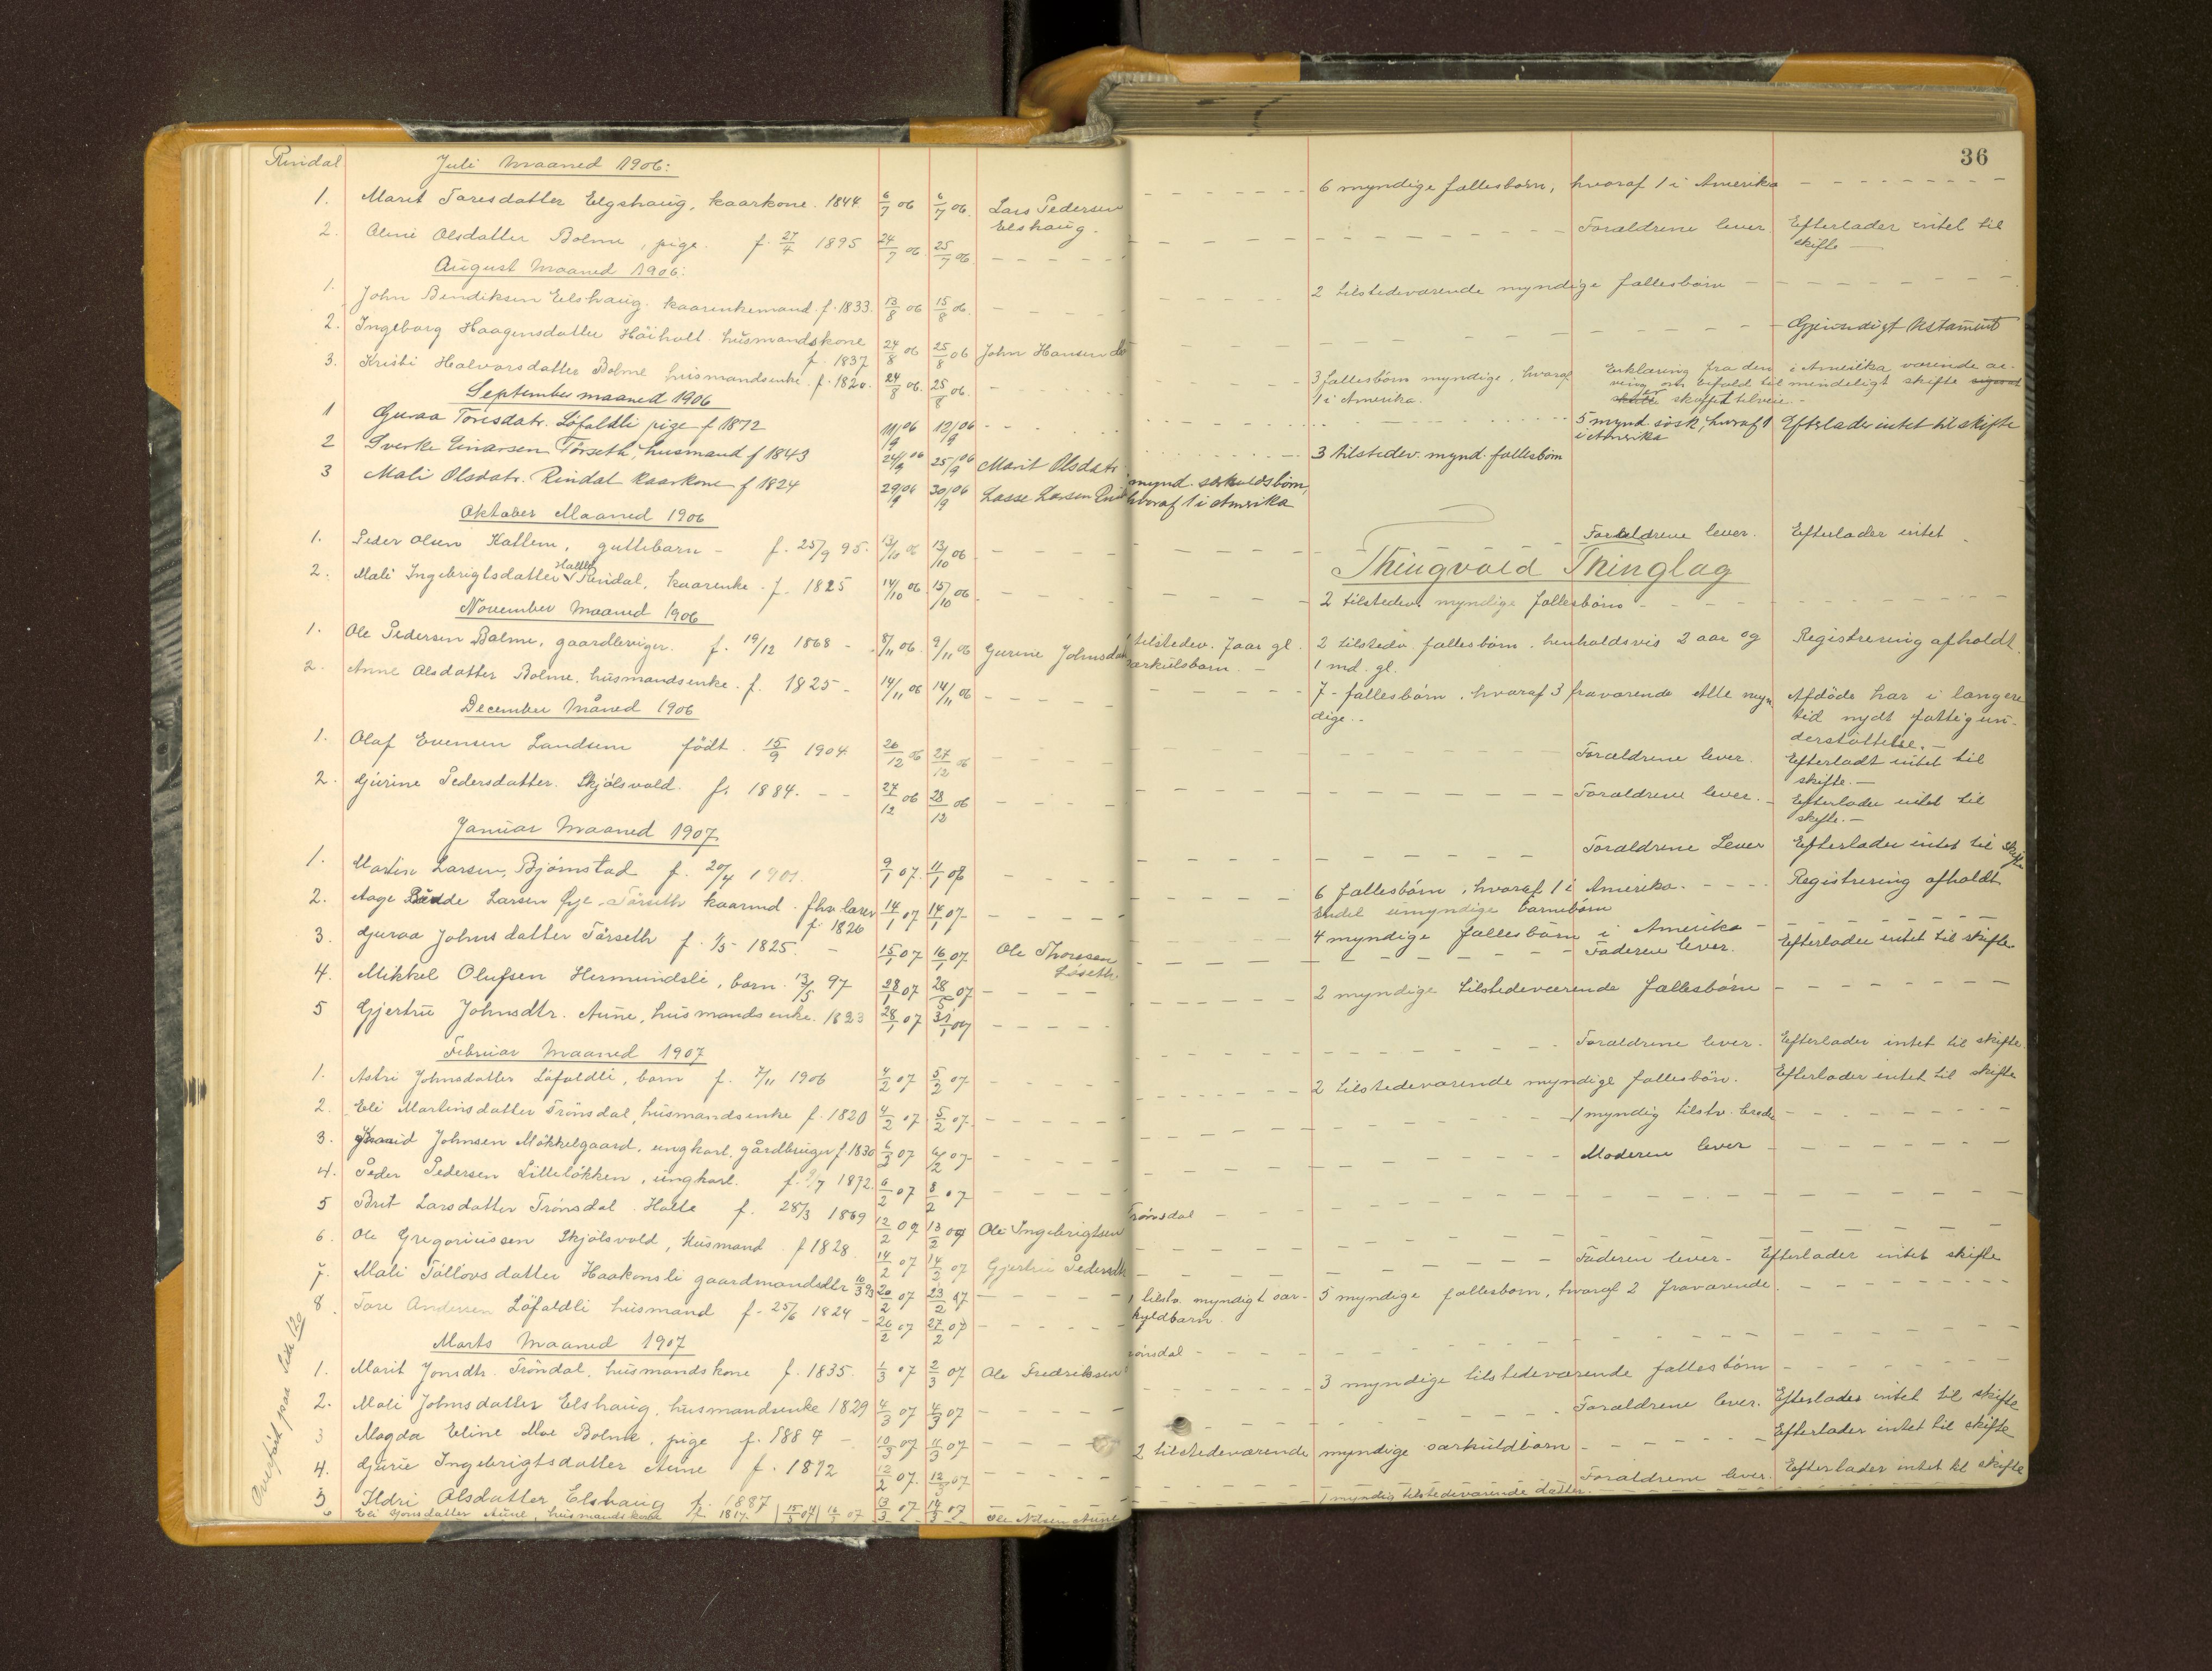 36
Rindal
Juli Maaned 1906:
1. Marit Toresdatter Elgshaug, kaarkone. 1844 6/7 06 6/7 06. Lars Pedersen Elshaug. - - - 6 myndige fællesbørn, hvoraf 1 i Amerika - - -
2. Oline Olsdatter Bolme, pige. f. 27/4 1895 24/7 06 25/7 06. - - - Forældrene lever. Efterlader intet til skifte -
August Maaned 1906:
1. John Bendiksen Elshaug. kaarenkemand. f. 1833. 13/8 06 15/8 06. - - - 2 tilstedeværende myndige fællesbørn - - -
2. Ingeborg Haagensdatter Høiholt. husmandskone f. 1837 24/8 06 25/8 06 John Hansen do - - - Gjensidigt testament
3. Kristi Halvorsdatter Bolme husmandsenke. f. 1820. 24/8 06. 25/8 06. - - - 3 fællesbørn myndige, hvoraf 1 i Amerika. Erklæring fra den i Amerika værende arving om bifald til mindeligt skifte skaffet tilveie. -
September maaned 1906
1 Guraa Toresdatr. Löfaldli pige f 1872 11/9 06 12/9 06 - - - 5 mynd. søsk., hvoraf 1 i Amerika Efterlader intet til skifte
2 Sverke Einarsen Törseth, husmand f 1843 24/9 06 25/9 06 Marit Olsdatr. - - - 3 tilstedev. mynd. fællesbørn
3 Mali Olsdatr. Rindal kaarkone f 1824 29/9 06 30/9 06 Lasse Larsen mynd. særkuldsbörn, hvoraf 1 i Amerika
Oktober Maaned 1906
1. Peder Olsen Kattem, guttebarn - f. 25/9 95. 13/10 06 13/10 06 - - - Forældrene lever. Efterlader intet
Thingvold Thinglag
2. Mali Ingebrigtsdatter Halte Rindal, kaarenke. f. 1825 14/10 06 15/10 06 - - - 2 tilstedev. myndige fællesbørn - - -
November Maaned 1906
1. Ole Pedersen Bolme, gaardbruger. f. 19/12 1868 - 8/11 06. 9/11 06 Gurine Johnsdatr tilstedev. 7 aar gl. særkulsbarn. - 2 tilstedv. fællesbørn, henholdsvis 2 aar og 1 md. gl. Registrering afholdt.
2. Anne Olsdatter Bolme, husmandsenke. f. 1825 - 14/11 06 14/11 06 - - - 7 - fællesbørn, hvoraf 3 fraværende. Alle myndige. - Afdøde har i længere tid nydt fattigunderstøttelse. -
December Måned 1906
1. Olaf Evensen Landsem født. 15/9 1904 26/12 06 27/12 06 - - - Forældrene lever. Efterladt intet til skifte. -
2. Gjurine Pedersdatter. Skjølsvold. f. 1884. - - 27/12 06 28/12 06 - - - Forældrene lever. - Efterlader intet til skifte. -
Januar Maaned 1907.
1. Martin Larsen Bjørnstad f. 20/4 1901. 9/1 07. 11/1 07 - - - Forældrene Lever Efterlader intet til skifte
2. Aage Larsen Øye - Törseth kaarmd. fhv. lærer f. 1826 14/1 07 14/1 07 - - - 6 fællesbörn, hvoraf 1 i Amerika. - - - Endel umyndige barnebörn Registrering afholdt
3. Guraa Johnsdatter Törseth f. 1/5 - 1825. - 15/1 07 16/1 07. Ole Thoresen Löseth. - - - 4 myndige fællesbörn i Amerika - - -
4. Mikkel Olufsen Hermundsli, barn. 13/5 97 28/1 07 28/5 07 - - - Faderen lever. Efterlader intet til skifte.
5 Gjertru Johnsdtr. Aune, husmandsenke. 1823 28/1 07 31/1 07 - - - 2 myndige tilstedeværende fællesbörn - - -
Februar Maaned 1907
1. Astri Johnsdatter Löfaldli, barn f. 7/11 1906 4/2 07 5/2 07 - - - Forældrene lever. Efterlader intet til skifte.
2. Eli Martinsdatter Trönsdal, husmandsenke f. 1820 4/2 07. 5/2 07. - - - 2 tilstedeværende myndige fællesbörn. Efterlader intet til skifte
3. Johnsen Mökkelgaard, ungkarl. gårdbruger f. 1830 6/2 07 6/2 07 - - - 1 myndig tilstv. broder - - -
4. Peder Pedersen Lilleløkken, ungkarl. f. 9/7 1872. 6/2 07 8/2 07 - - - Moderen lever - - -
5 Brit Larsdatter Trönsdal. Halte f. 28/3 1869 12/2 07 13/2 07 Ole Ingebrigtsen Trönsdal - - -
6. Ole Gregoriussen Skjölsvold, Husmand. f 1828. 14/2 07 14/2 07 Gjertru Pedersdtr - - -
7. Mali Tollovsdatter Haakonsli gaardmandsdtr 10/3 93 20/2 07 23/2 07 - - - Faderen lever. - Efterlader intet skifte
8. Tore Andersen Löfaldli husmand f. 25/6 1824 - 26/2 07 27/2 07 - - - 1 tilstv. myndigt særkuldbarn. 5 myndige fællesbörn, hvoraf 2 fraværende. - - -
Marts Maaned 1907
1. Marit Jonsdtr. Tröndal, husmandskone f. 1835. 1/3 07 2/3 07 Ole Fredriksen rönsdal - - -
2. Mali Johnsdatter Elshaug, husmandsenke 1829 4/3 07 4/3 07 - - - 3 myndige tilstedeværende fællesbörn - - -
3 Magda Eline Moe Bolme, pige f. 1887 - 10/3 07 11/3 07 - - - Forældrene lever. Efterlader intet til skifte
4. Guru Ingebrigtsdatter Aune f. 1872 12/2 07. 12/3 07 - - - 2 tilstedeværende myndige særkuldbörn - - - Efterlader intet til skifte
5 Ildri Olsdatter Elshaug f. 1887 13/3 07 14/3 07 - - - Forældrene lever. Efterlader intet til skifte
6 Eli Jonsdatter Aune, husmandskone f. 1817. 15/3 07 16/3 07 Ole Nilsen Aune 1 myndig tilstedeværende datter. - - -
Overført paa Side 120